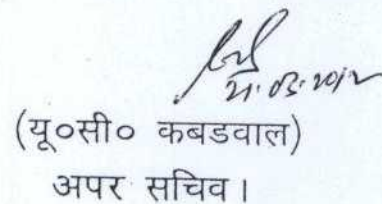 21.03.2012
(यू०सी० कबडवाल)
अपर सचिव।